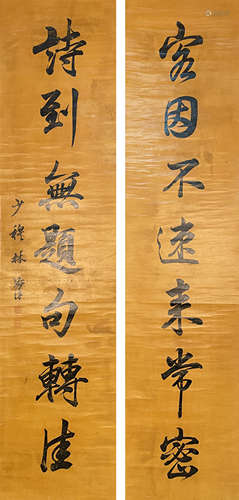 客因不速来常密
詩到無題句轉佳
少穆林則徐